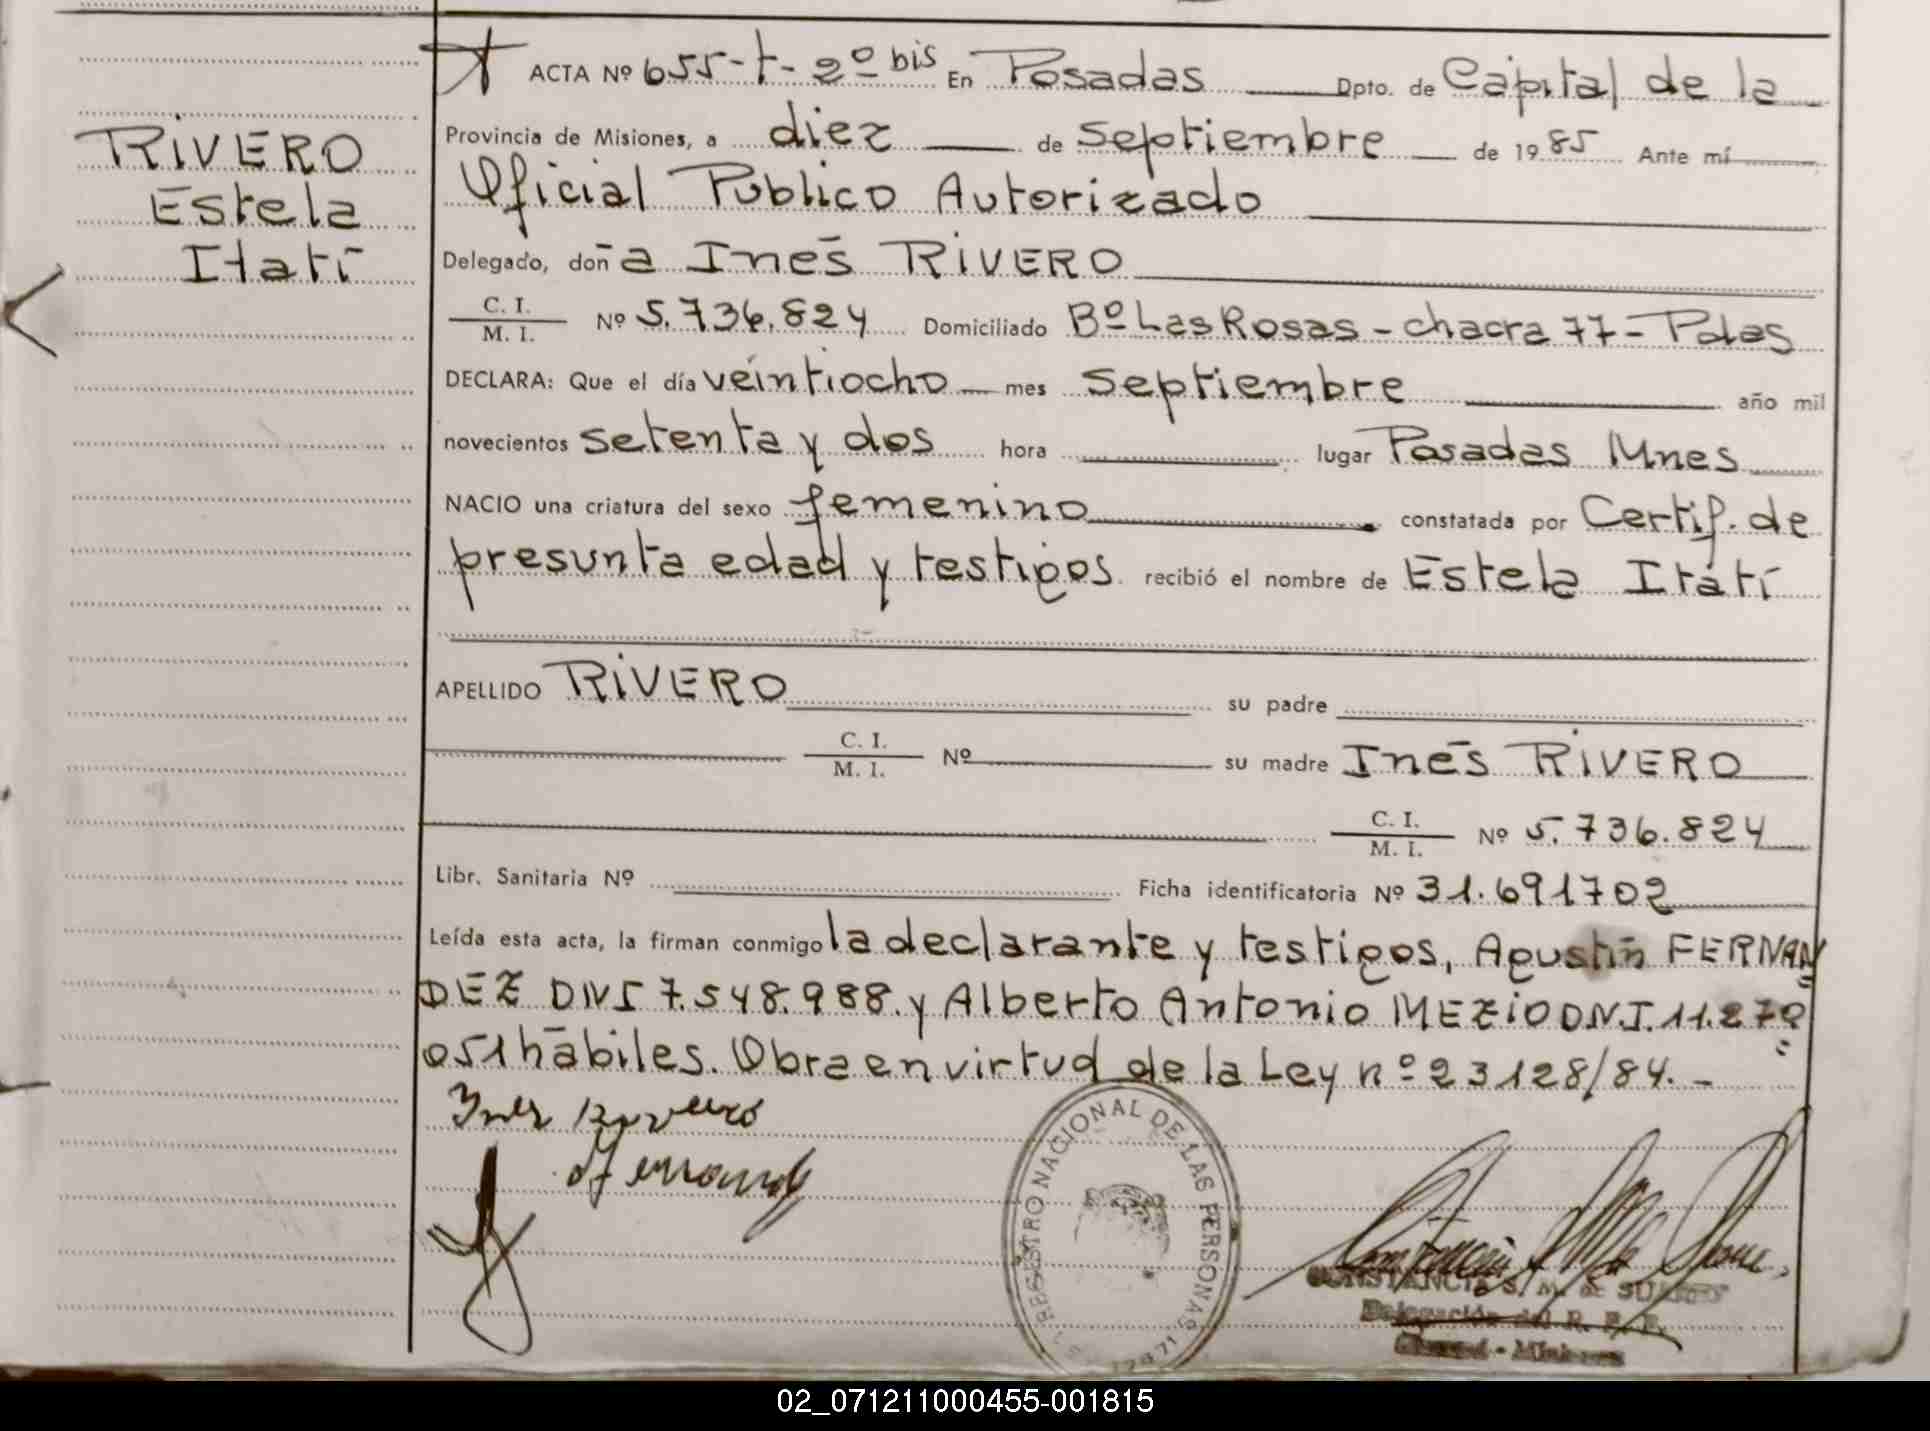 ACTA Nº 655-t-2º bis En Posadas Dpto. de Capital de la
Provincia de Misiones, a diez de septiembre de 1985 Ante mí
RIVERO
Oficial Publico Autorizado
Estela
Delegado, doña Inés RIVERO
Itatí
C. I.
M. I.
Nº 5.736.824 Domiciliado Bº Las Rosas - chacra 77 - Pdas
DECLARA: Que el día veintiocho mes septiembre año mil
novecientos setenta y dos hora lugar Posadas Mnes
NACIO una criatura del sexo femenino constatada por Certif. de
presunta edad y testigos recibió el nombre de Estela Itatí
APELLIDO RIVERO su padre
C. I.
M. I.
Nº su madre Inés RIVERO
C. I.
M. I.
Nº 5.736.824
Libr. Sanitaria Nº Ficha identificatoria Nº 31.691702
Leída esta acta, la firman conmigo la declarante y testigos, Agustín FERNAN
DEZ DNI 7.548.988. y Alberto Antonio MEZIO D.N.I. 11.270
051 hábiles. Obra en virtud de la Ley nº 23128/84.-
Inés Rivero
REGISTRO NACIONAL DE LAS PERSONAS
02_071211000455-001815